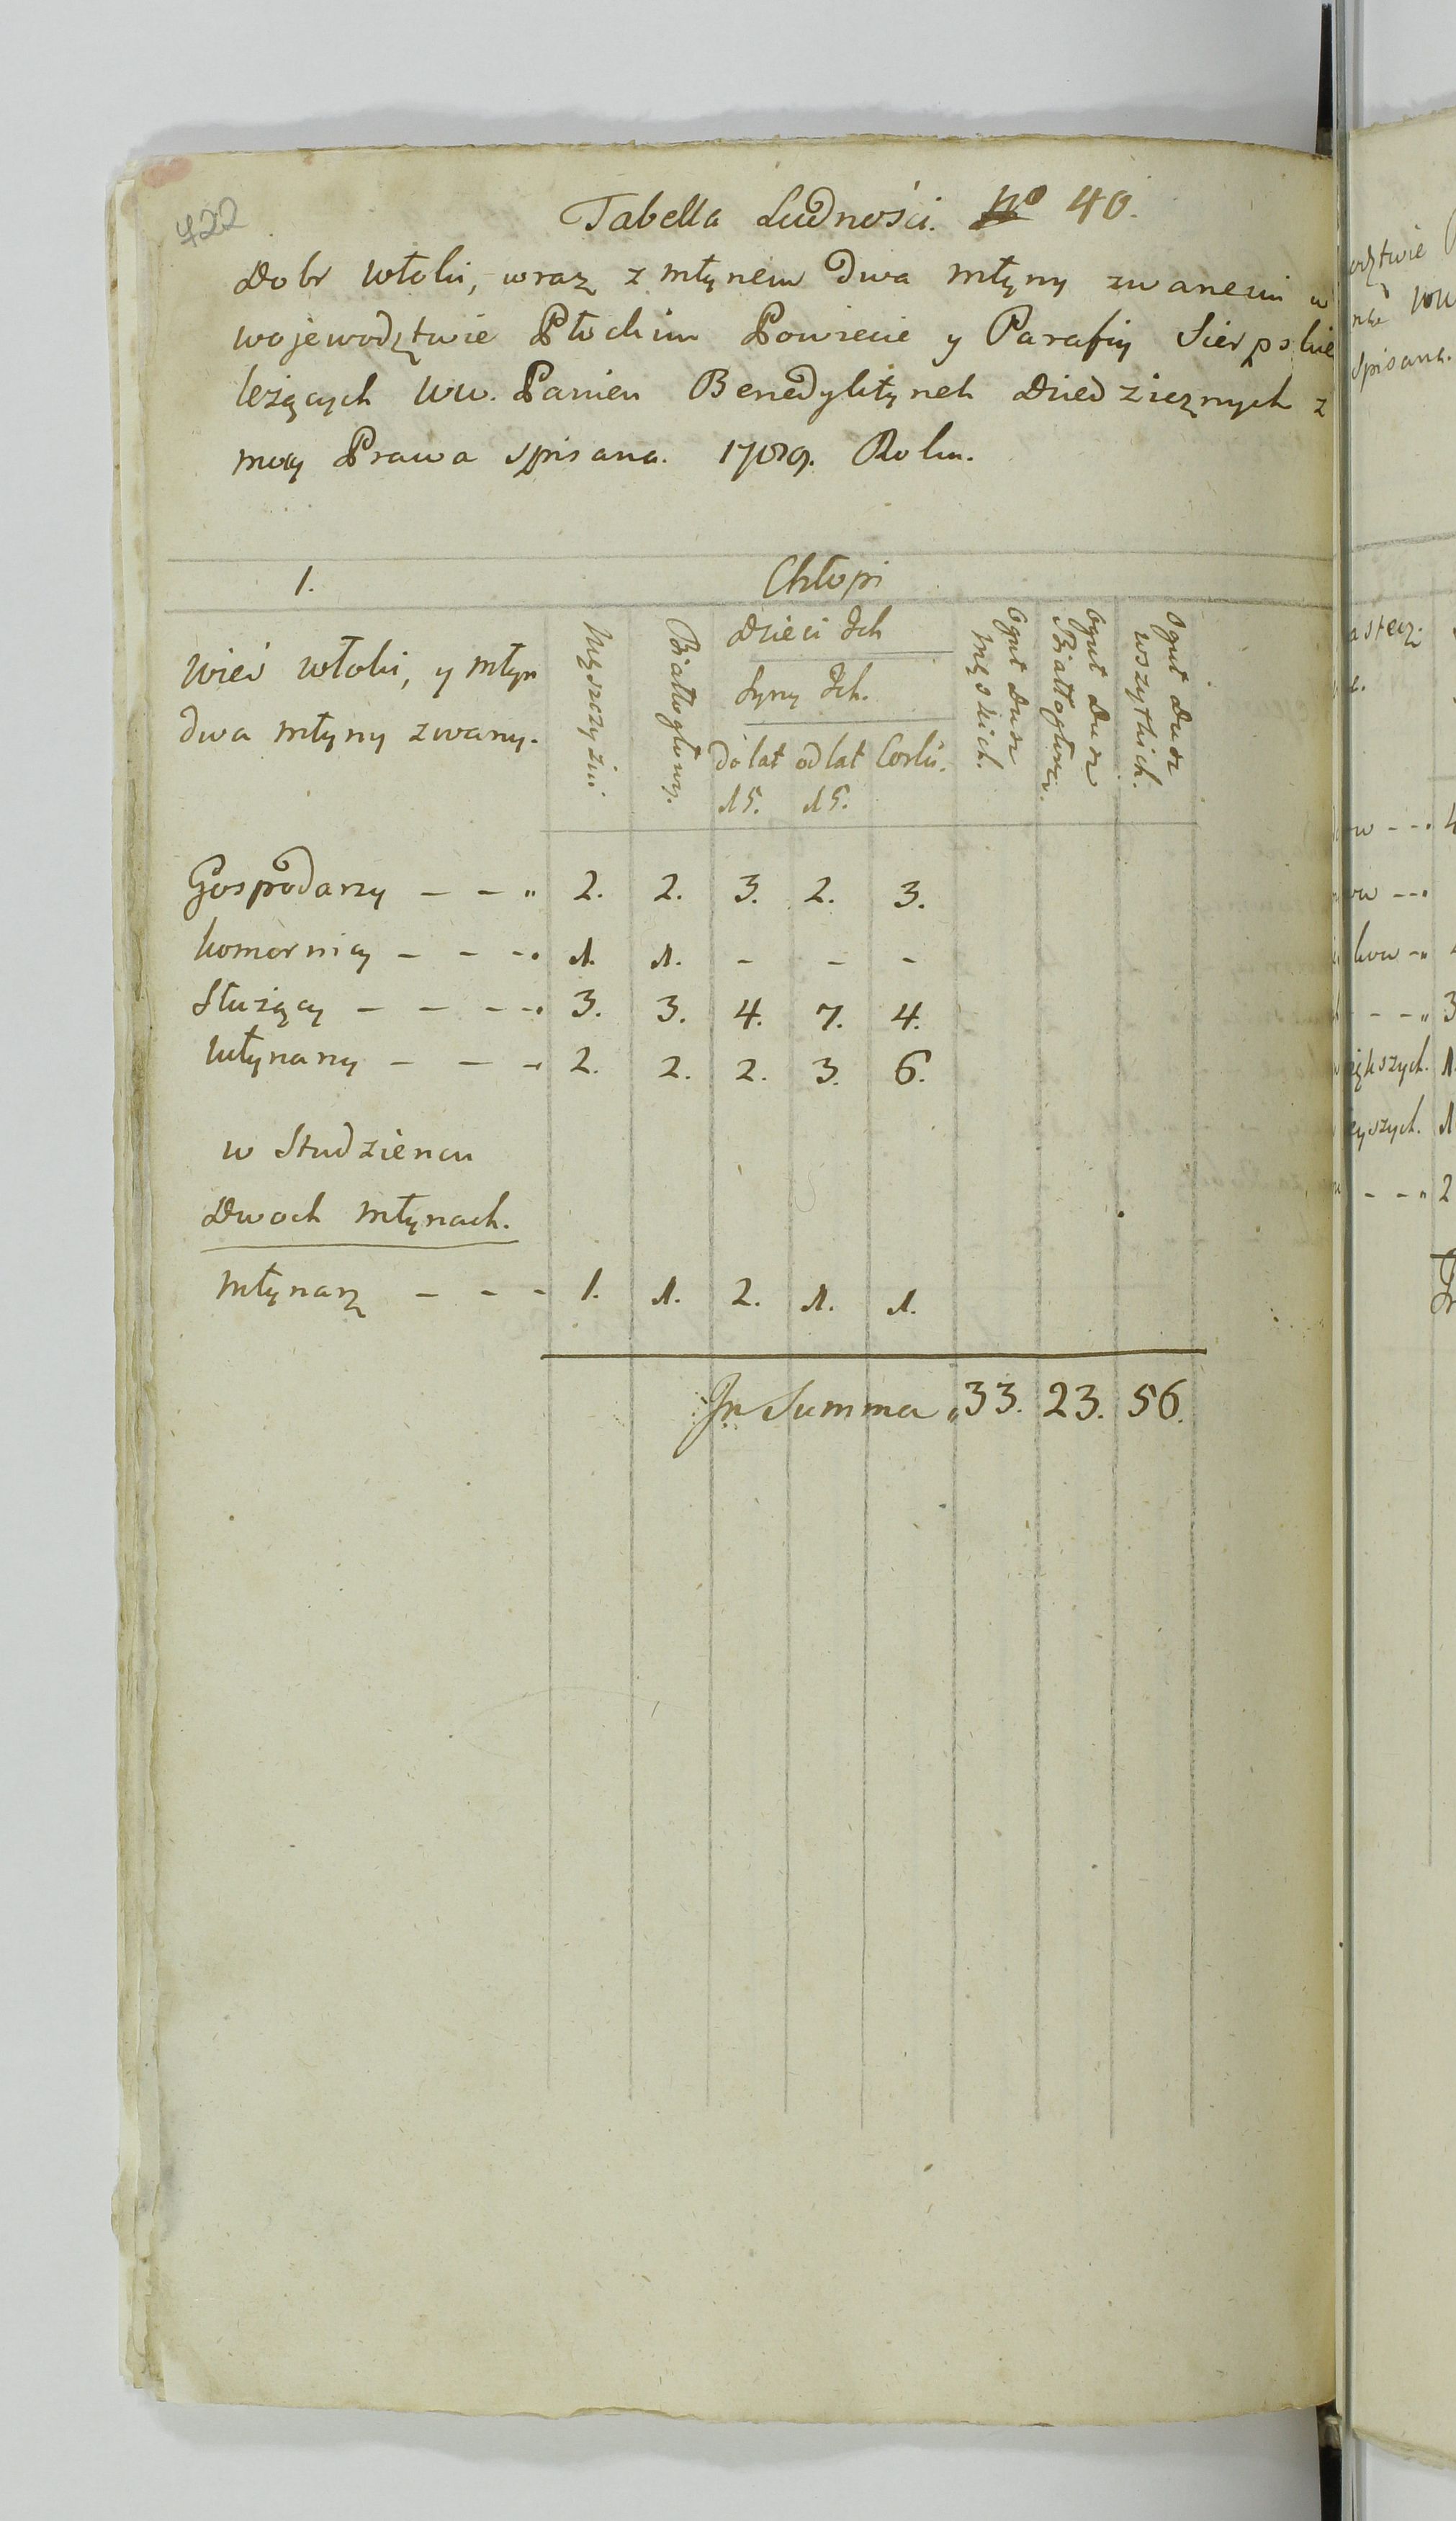 422
Tabella Ludności. No 40.
Dobr Włoki, wraz z młynem Dwa młyny zwanem w
wojewodztwie Płockim Powiecie y Parafiy Sierpskie
leżących WW. Panien Benedyktynek Dziedzicznych z
mocy Prawa spisana. 1789. Roku.
1. Chłopi
Wieś Włoki, y Młyn
dwa młyny zwany.
Męszczyźni
Białogłowy.
Dzieci Ich
Syny Ich.
do lat 15.
od lat 15.
Corki.
Oguł Dusz Męskich.
Oguł Dusz Białogłow.
Oguł Dusz wszytkich.
Gospodarzy - - " 2. 2. 3. 2. 3.
komornicy - - - 1. 1. - - -
Służący - - - 3. 3. 4. 7. 4.
Młynarzy - - - 2. 2. 2. 3. 6.
w Studziencu
Dwoch Młynach.
Młynarz - - - 1. 1. 2. 1. 1.
In Summa 33. 23. 56.
spisana.